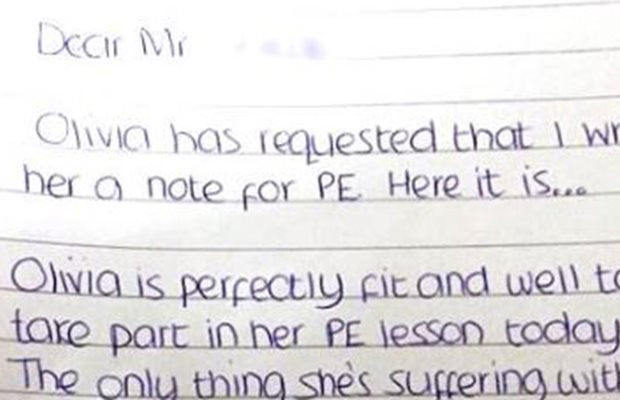 Dear Mr
Olivia has requested that I wr
her a note for PE. Here it is...
Olivia is perfectly fit and well to
take part in her PE lesson today
The only thing she's suffering with